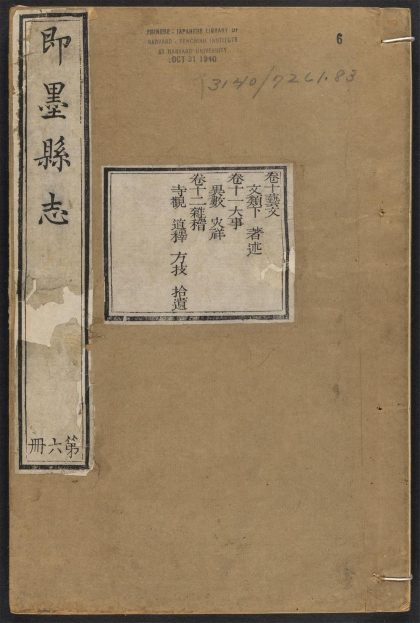 CHINESE - JAPANESE LIBRARY OF
HARVARD - YENCHING INSTITUTE
AT HARVARD UNIVERSITY
OCT 31 1940
6
3140/7261.83
即墨縣志
第六冊
卷十藝文
文類下 著述
卷十一大事
異數 災祥
卷十二雜稽
寺觀 道釋 方技 拾遺